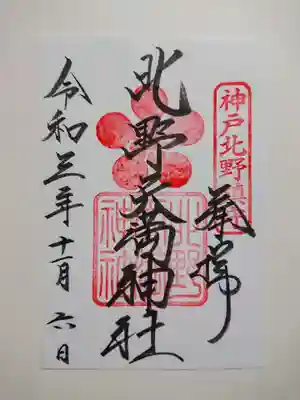 神戸北野鎮守
奉拝
北野天満神社
令和三年十一月六日
北野天満神社